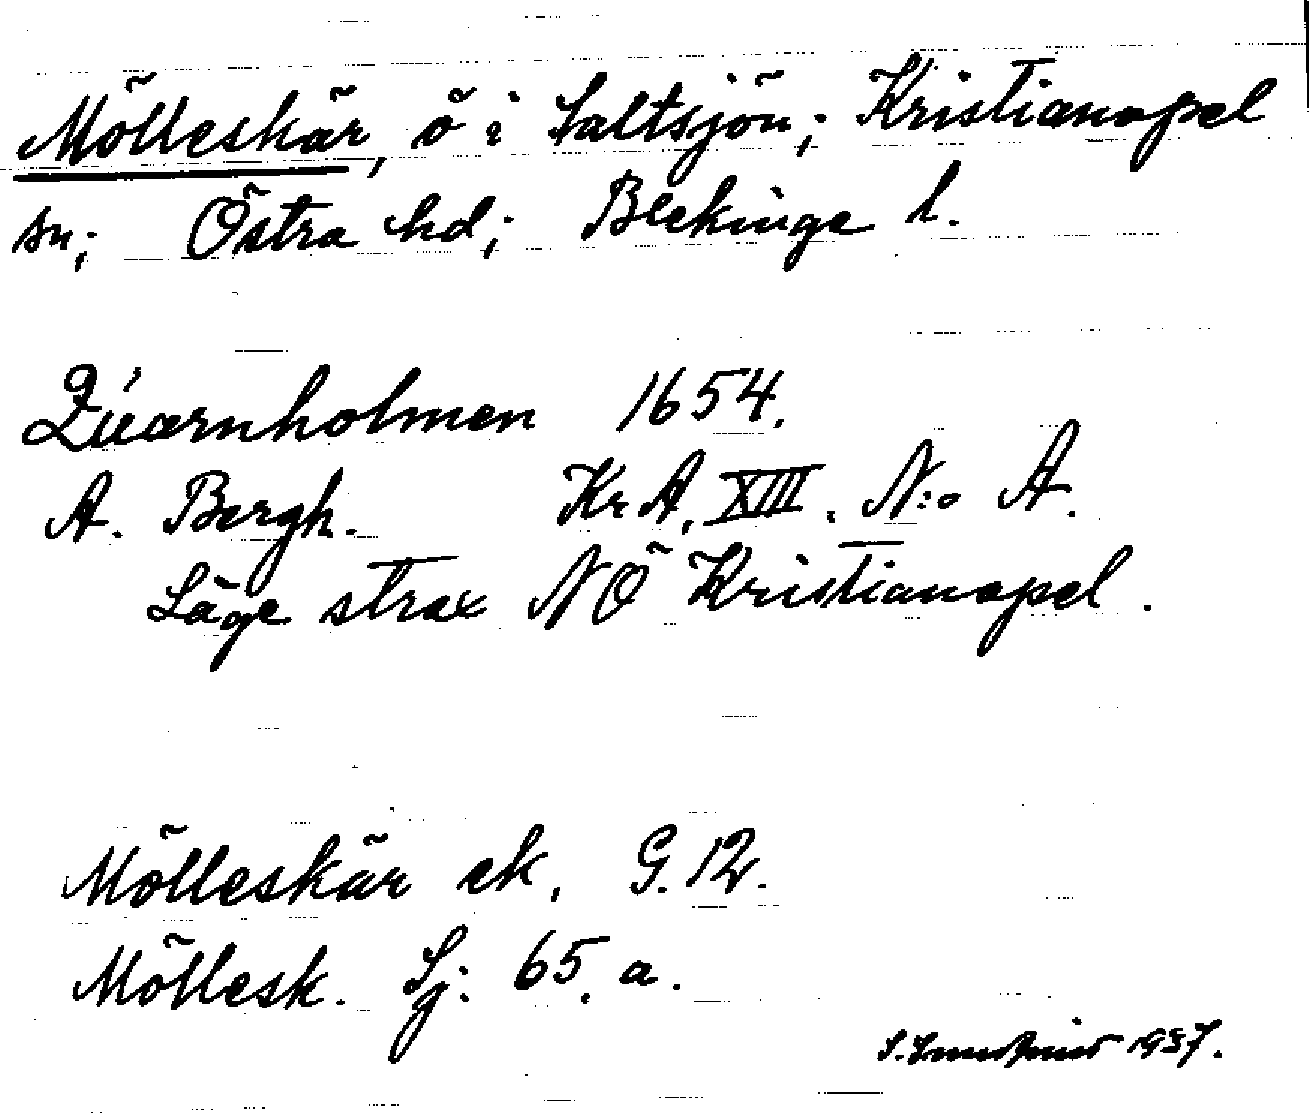 Mölleskär, ö i Saltsjön; Kristianopel
sn; Östra hd; Blekinge l.
Quarnholmen 1654.
A. Bergh. Kr A. XIII. N:o A.
Läge strax NÖ Kristianopel.
Mölleskär ek. G. 12.
Möllesk. Sj: 65. a.
1937.